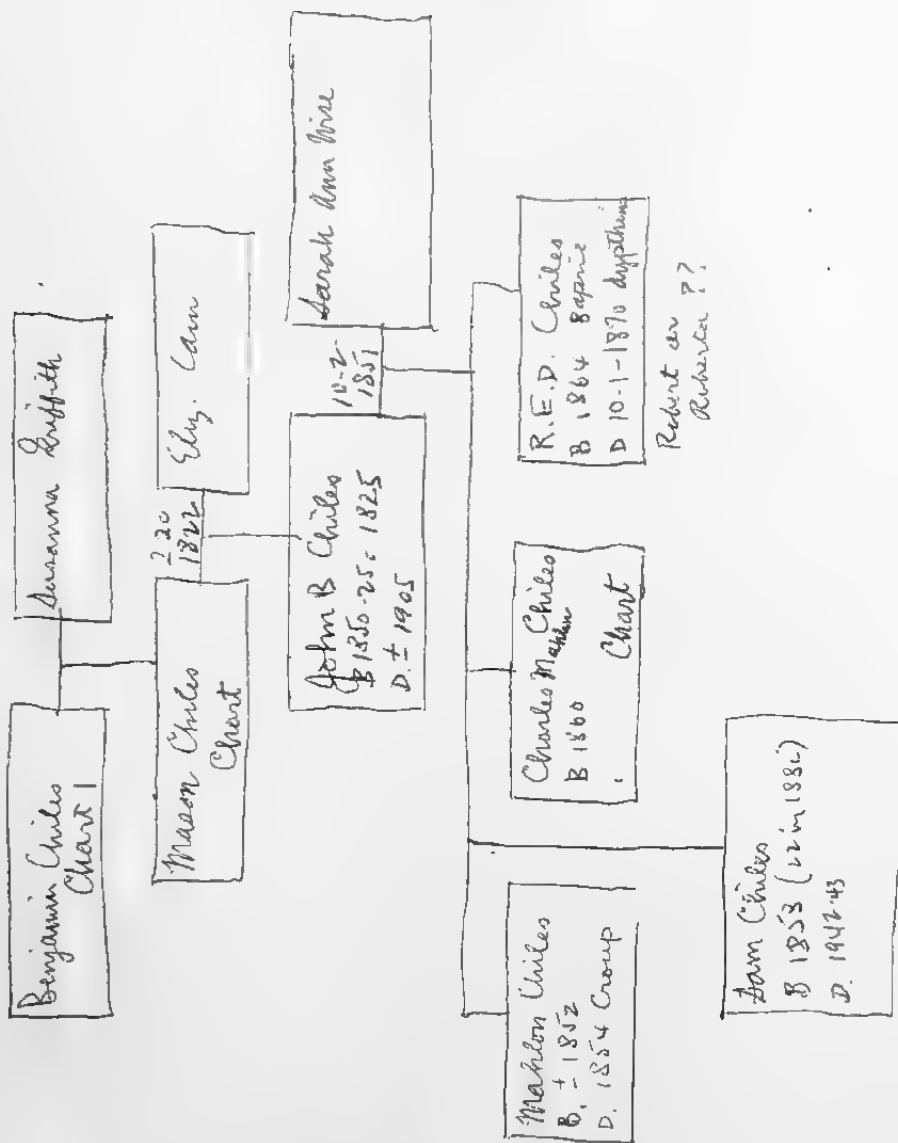 Benjamin Chiles
Chart 1
Susanna Griffith
Mason Chiles
Chart
2 20
1822
Eliz. Cain
John B Chiles
B 1850-25 = 1825
D. ± 1905
10-2
1851
Sarah Ann Wise
Mahlon Chiles
B. ± 1852
D. 1854 Croup
Sam Chiles
B 1858 (22 in 1880)
D. 1942-43
Charles Mahlon Chiles
B 1860
Chart
R.E.D. Chiles
B 1864
D 10-1-1870 dyptheria
Robert or
Roberta ??